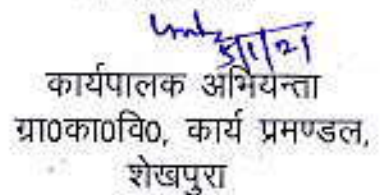 5/1/21
कार्यपालक अभियन्ता
ग्रा0का0वि0, कार्य प्रमण्डल,
शेखपुरा